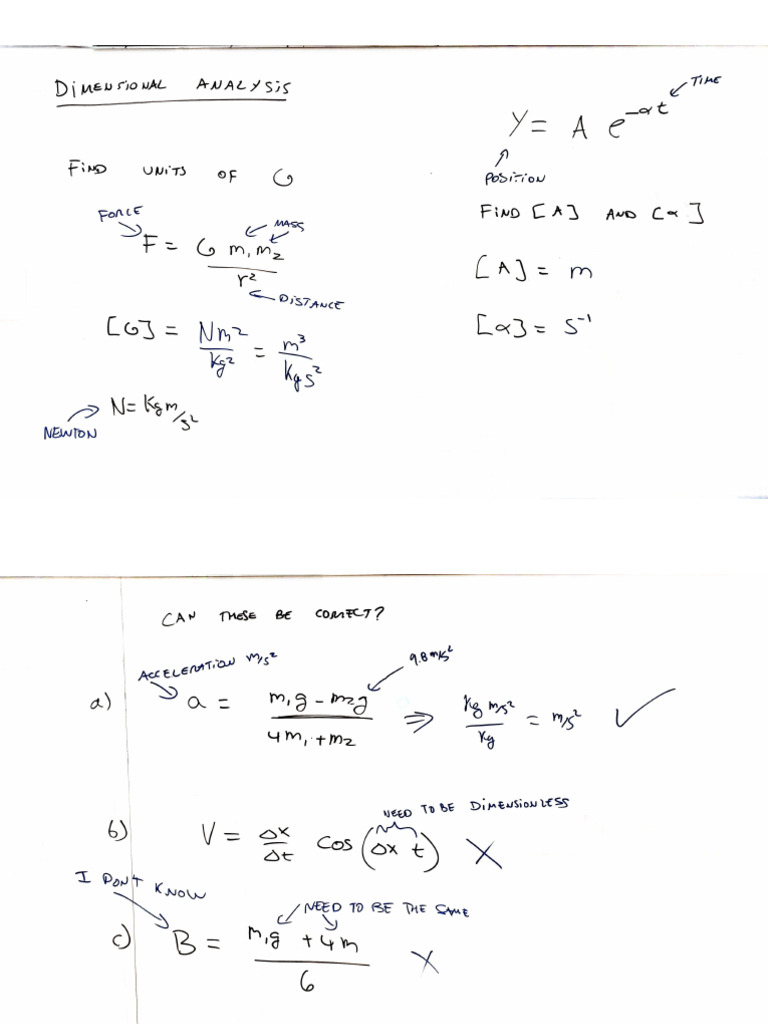 DIMENSIONAL ANALYSIS
FIND UNITS OF G
FORCE
MASS
F = G m₁ m₂ / r²
DISTANCE
[G] = Nm² / kg² = m³ / kg s²
N = kg m/s²
NEWTON
TIME
Y = A e^(-αt)
POSITION
FIND [A] AND [α]
[A] = m
[α] = s⁻¹
CAN THESE BE CORRECT?
ACCELERATION m/s²
9.8 m/s²
a) a = m₁g - m₂g / 4m₁ + m₂ ⇒ kg m/s² / kg = m/s² ✓
NEED TO BE DIMENSIONLESS
b) V = Δx / Δt cos(Δx t) X
I DON'T KNOW
NEED TO BE THE SAME
c) B = m₁g + 4m / 6 X